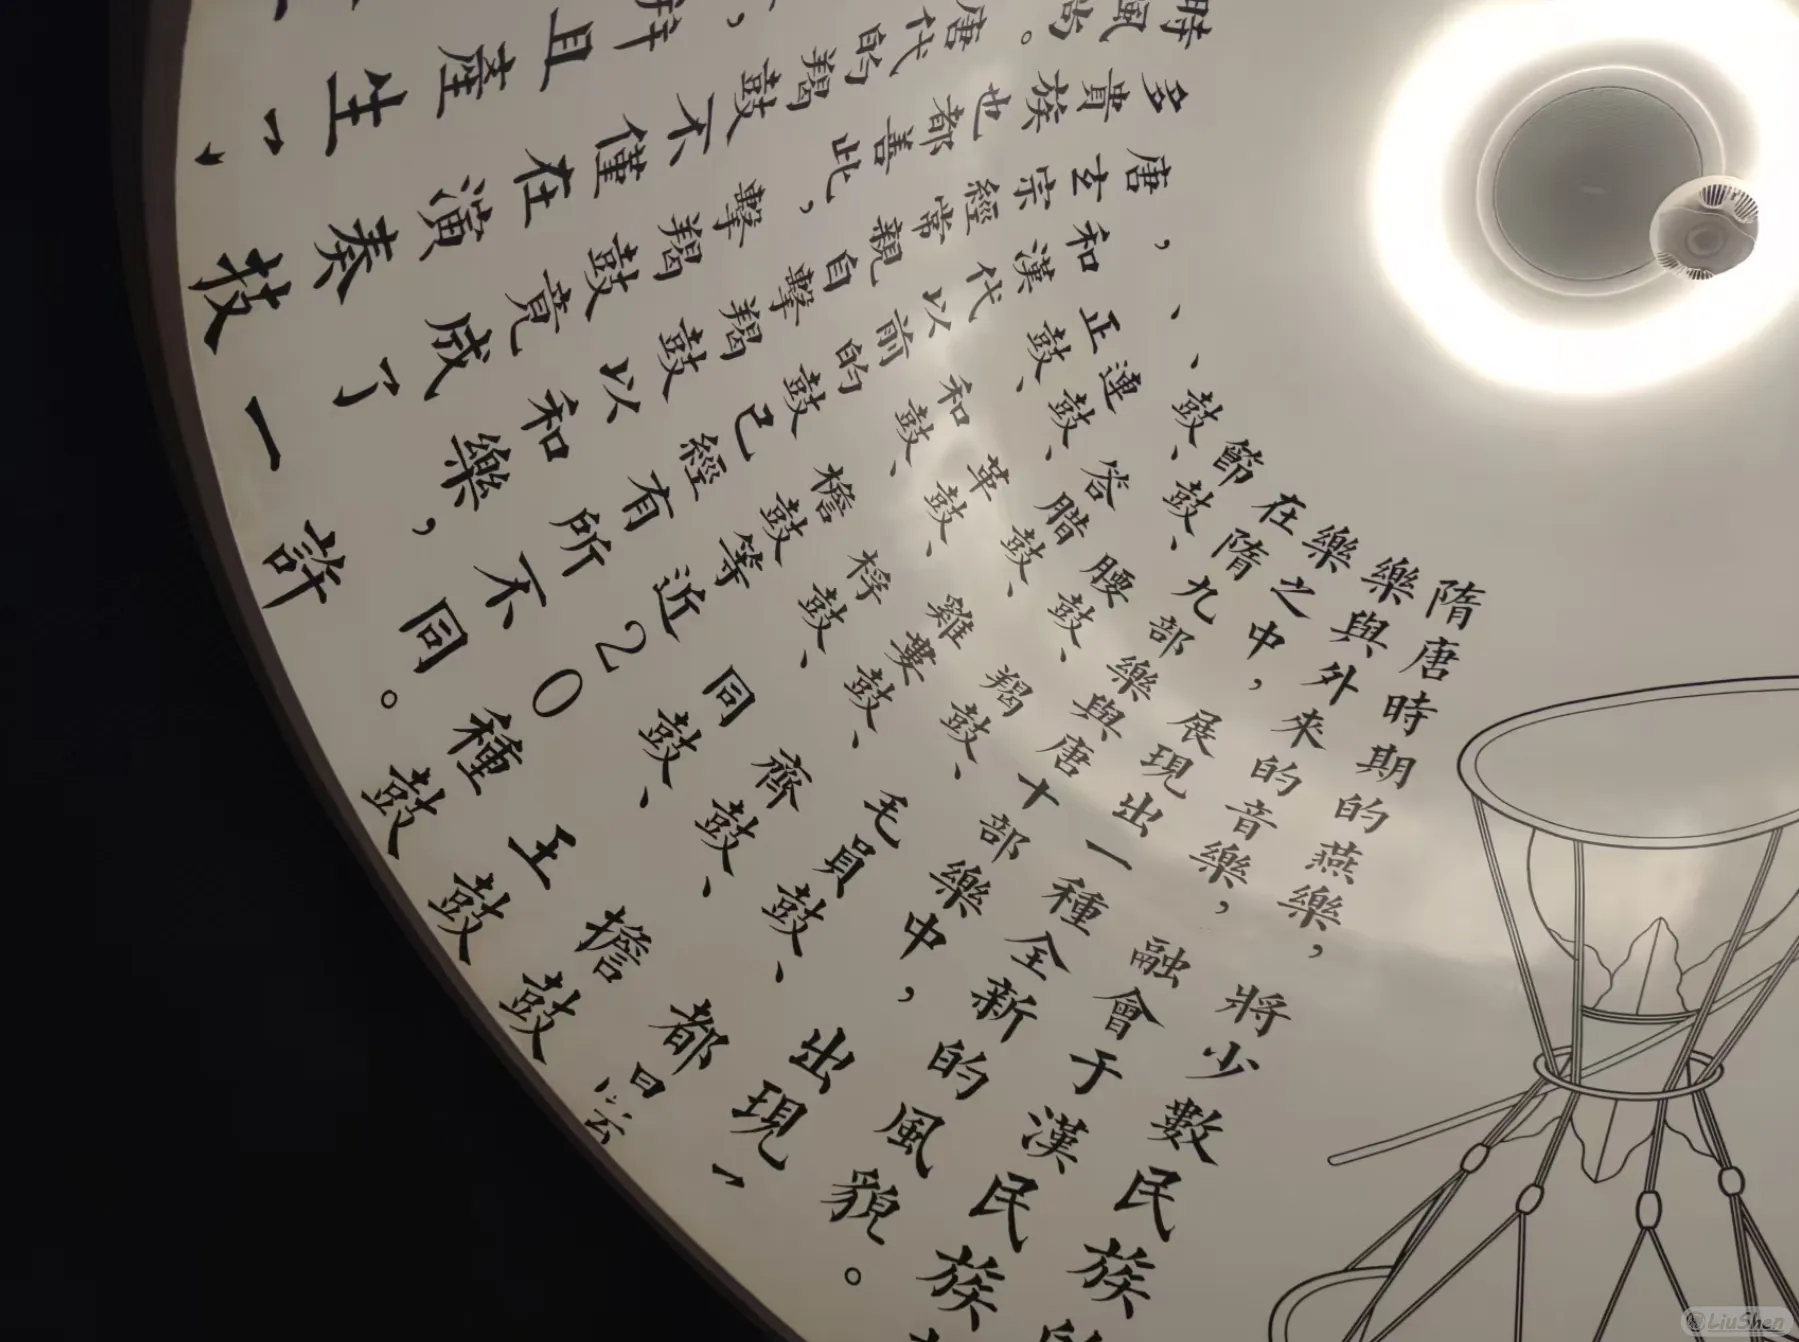 隋唐時期的燕樂，將少數民族的
樂與外來的音樂，融會于漢民族
樂之中，展現出一種全新的風貌。
在隋九部樂與唐十部樂中，出現
節鼓、腰鼓、羯鼓、毛員鼓、都曇
鼓、答臘鼓、雞婁鼓、齊鼓、擔鼓
、連鼓、革鼓、桴鼓、同鼓、王鼓
、正鼓、和鼓、檐鼓等近20種鼓
，和漢代以前的鼓已經有所不同。
唐玄宗經常親自擊羯鼓以和樂，許
多貴族也都善此，擊羯鼓竟成了一
時風尚。唐代的羯鼓不僅在演奏技
且產生